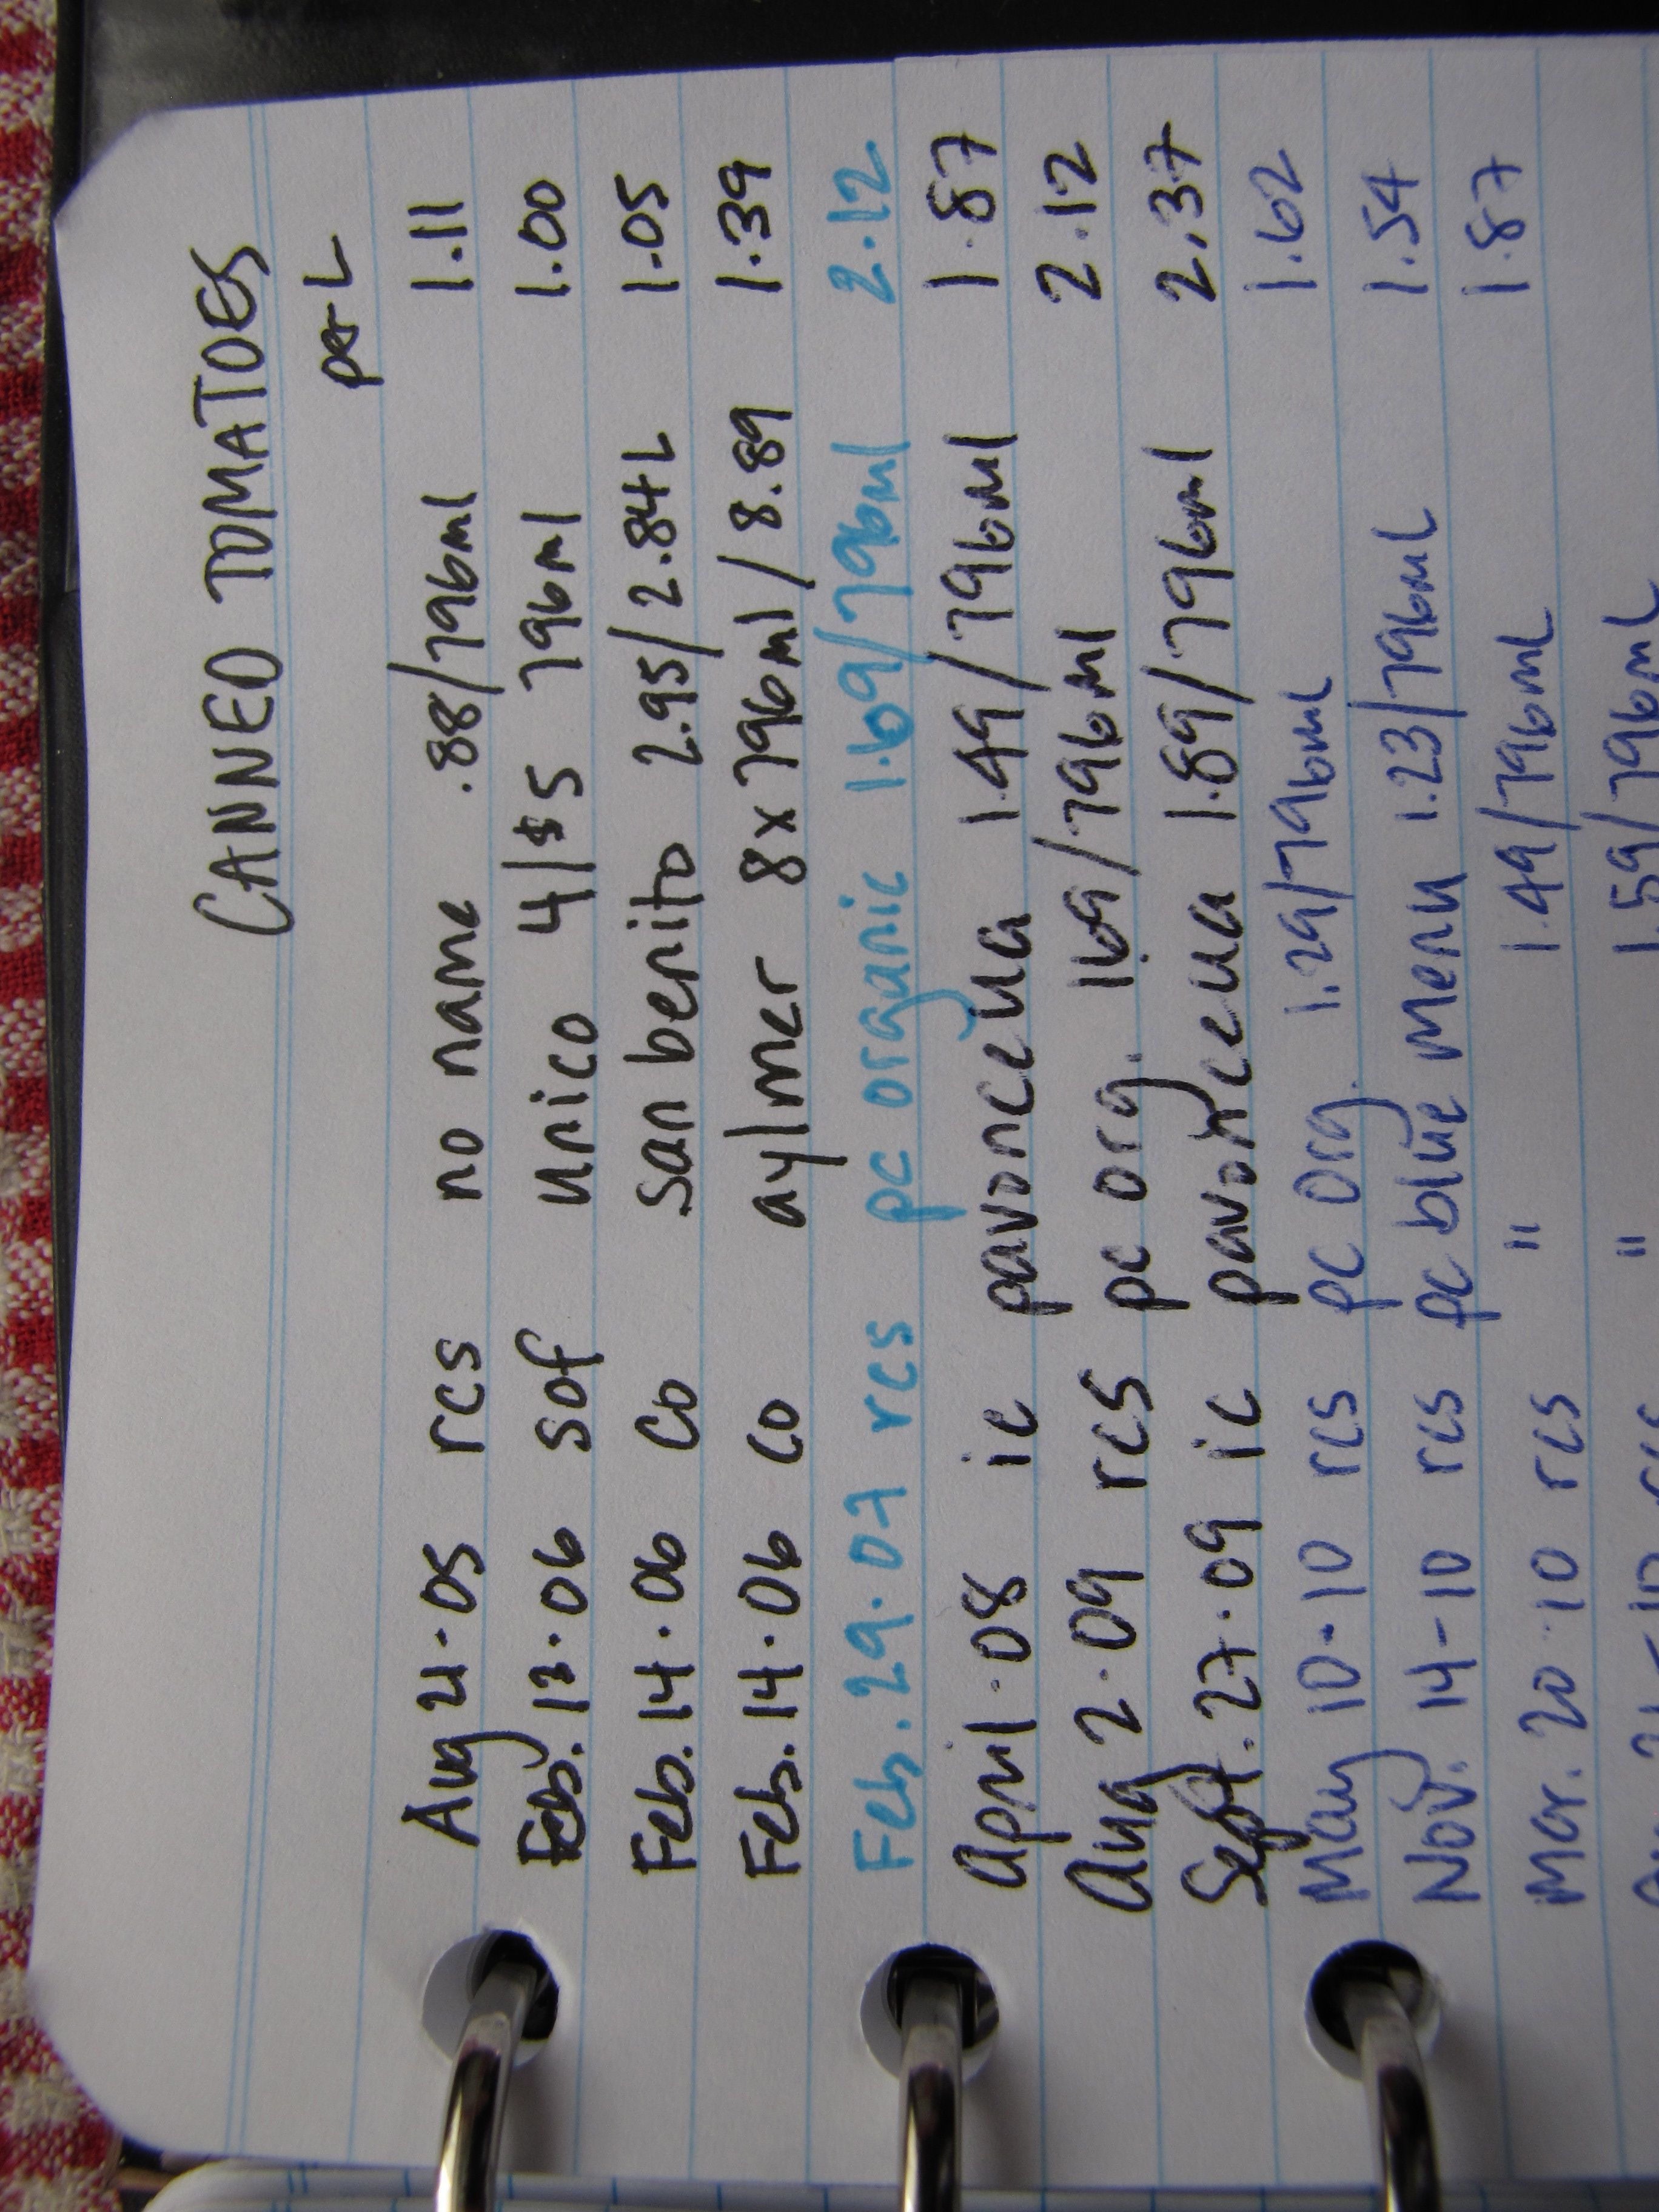 CANNED TOMATOES
per L
Aug 21.05 rcs no name .88/796ml 1.11
Feb. 13.06 sof unico 4/$5 796ml 1.00
Feb. 14.06 co san benito 2.95/2.84L 1.05
Feb. 14.06 co aylmer 8x796ml/8.89 1.39
Feb. 29.07 rcs pc organic 1.69/796ml 2.12
april.08 ic pavoncella 1.49/796ml 1.87
aug 2.09 rcs pc org. 1.69/796ml 2.12
Sept.27.09 ic pavoncella 1.89/796ml 2.37
May 10-10 rcs pc Org. 1.29/796mL 1.62
Nov. 14-10 rcs pc blue menu 1.23/796mL 1.54
Mar. 20.10 rcs " 1.49/796mL 1.87
" 1.59/796mL